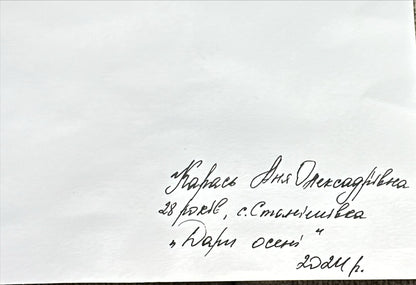 Карась Аня Олексадрівна
28 років, с. Станішівка
„Дари осені"
2024 р.